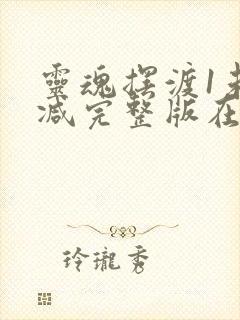 靈魂摆渡1未
减完整版在
玲瓏秀